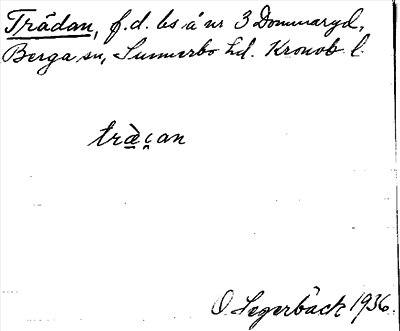 Trädan, f.d. ls å nr 3 Dommaryd,
Berga sn, Sunnerbo hd. Kronob. l.
träçan
O. Segerbäck 1936.